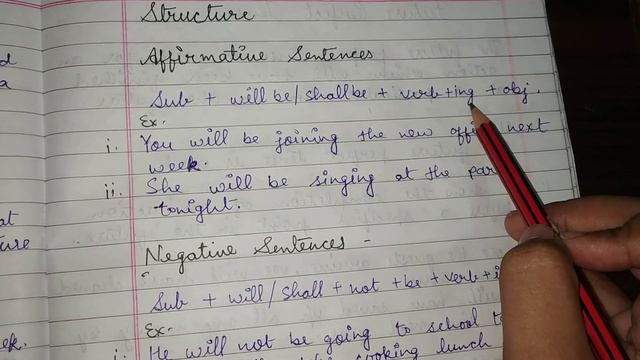 Structure
Affirmative Sentences
d
a
Sub + will be/shall be + verb+ing + obj.
Ex.
i. You will be joining the new next
week.
ii. She will be singing at the
tonight.
at
ture
Negative Sentences -
Sub + will/shall + not + be + verb + i
Ex.
ek.
i. He will not be going to school
cooking lunch